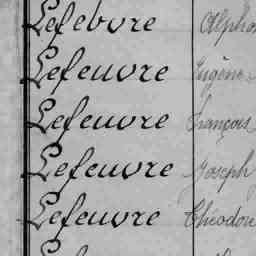 Lefebvre Alpho
Lefeuvre Eugène
Lefeuvre François
Lefeuvre Joseph
Lefeuvre Théodore